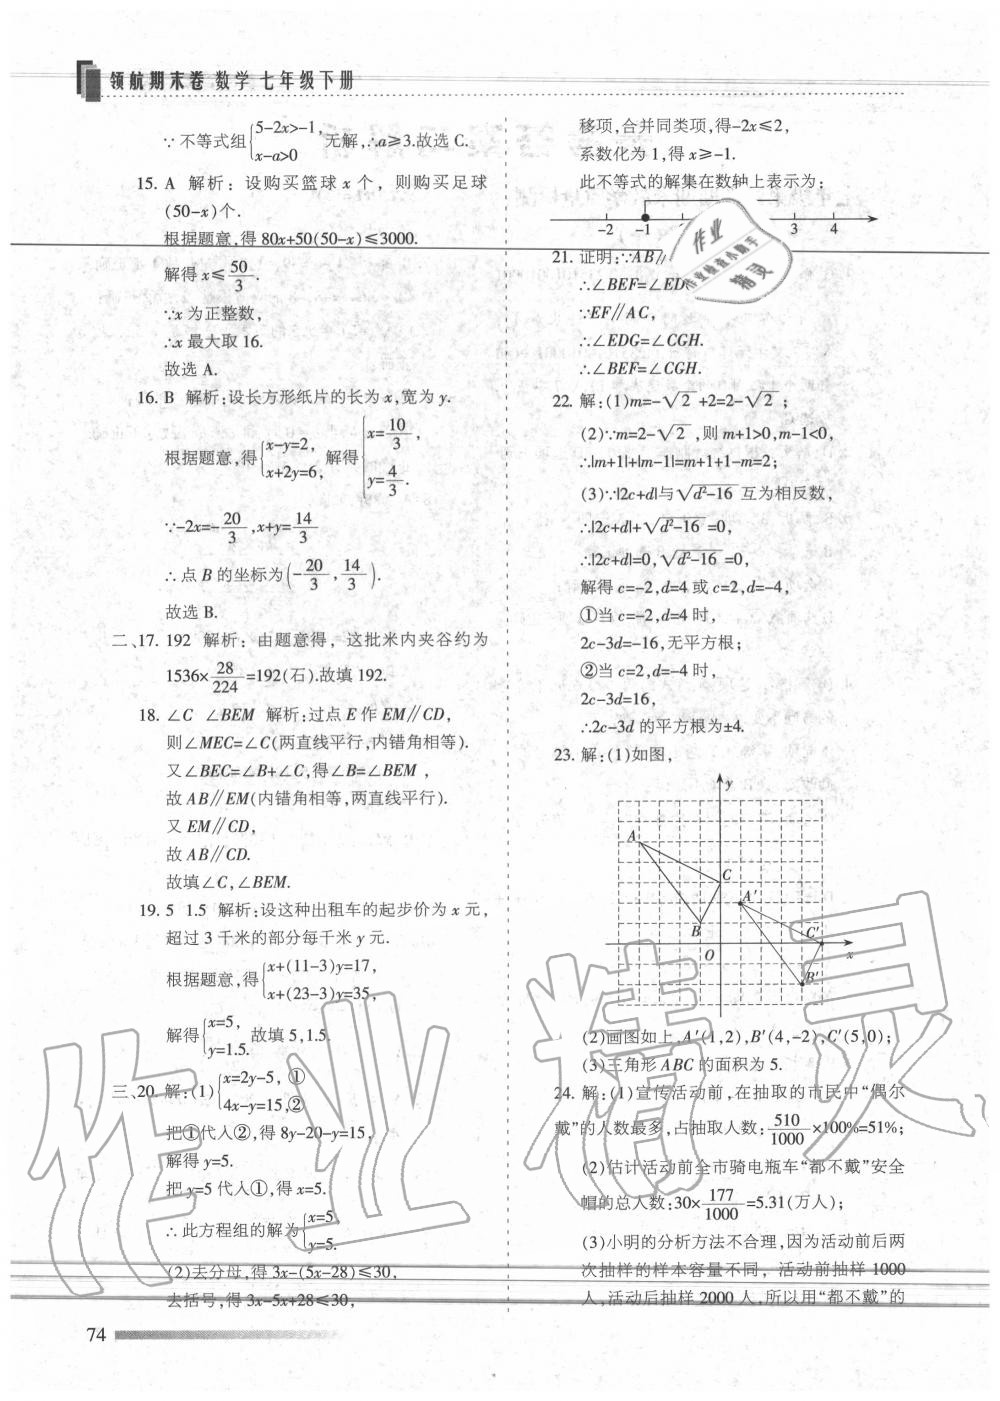 领航期末卷 数学 七年级下册
∵不等式组{5-2x>-1, x-a>0 无解,∴a≥3.故选 C.
15. A 解析：设购买篮球 x 个，则购买足球
(50-x)个.
根据题意,得 80x+50(50-x)≤3000.
解得 x≤50/3.
∵x 为正整数,
∴x 最大取 16.
故选 A.
16. B 解析:设长方形纸片的长为 x,宽为 y.
根据题意,得{x-y=2, x+2y=6, 解得{x=10/3, y=4/3.
∵-2x=-20/3,x+y=14/3
∴点 B 的坐标为(-20/3,14/3).
故选 B.
二、17. 192 解析：由题意得，这批米内夹谷约为
1536×28/224=192(石).故填 192.
18. ∠C ∠BEM 解析:过点 E 作 EM∥CD,
则∠MEC=∠C(两直线平行,内错角相等).
又∠BEC=∠B+∠C,得∠B=∠BEM,
故 AB∥EM(内错角相等,两直线平行).
又 EM∥CD,
故 AB∥CD.
故填∠C,∠BEM.
19. 5 1.5 解析:设这种出租车的起步价为 x 元,
超过 3 千米的部分每千米 y 元.
根据题意,得{x+(11-3)y=17, x+(23-3)y=35,
解得{x=5, y=1.5. 故填 5,1.5.
三、20. 解:(1){x=2y-5, ① 4x-y=15,②
把①代入②,得 8y-20-y=15,
解得 y=5.
把 y=5 代入①,得 x=5.
∴此方程组的解为{x=5, y=5.
(2)去分母,得 3x-(5x-28)≤30,
去括号,得 3x-5x+28≤30,
74
移项,合并同类项,得-2x≤2,
系数化为 1,得 x≥-1.
此不等式的解集在数轴上表示为:
-2 -1 3 4
作业
作业检查小助手
精灵
21. 证明:∵AB∥
∴∠BEF=∠ED
∵EF∥AC,
∴∠EDG=∠CGH.
∴∠BEF=∠CGH.
22. 解:(1)m=-√2+2=2-√2;
(2)∵m=2-√2,则 m+1>0,m-1<0,
∴|m+1|+|m-1|=m+1+1-m=2;
(3)∵|2c+d|与√d²-16 互为相反数,
∴|2c+d|+√d²-16=0,
∴|2c+d|=0,√d²-16=0,
解得 c=-2,d=4 或 c=2,d=-4,
①当 c=-2,d=4 时,
2c-3d=-16,无平方根;
②当 c=2,d=-4 时,
2c-3d=16,
∴2c-3d 的平方根为±4.
23. 解:(1)如图,
y
A
C
A′
B
C′
O
x
B′
(2)画图如上,A′(1,2),B′(4,-2),C′(5,0);
(3)三角形 ABC 的面积为 5.
24. 解:(1)宣传活动前,在抽取的市民中“偶尔
戴”的人数最多,占抽取人数:510/1000×100%=51%;
(2)估计活动前全市骑电瓶车“都不戴”安全
帽的总人数:30×177/1000=5.31(万人);
(3)小明的分析方法不合理,因为活动前后两
次抽样的样本容量不同，活动前抽样 1000
人,活动后抽样 2000 人,所以用“都不戴”的
作业精灵